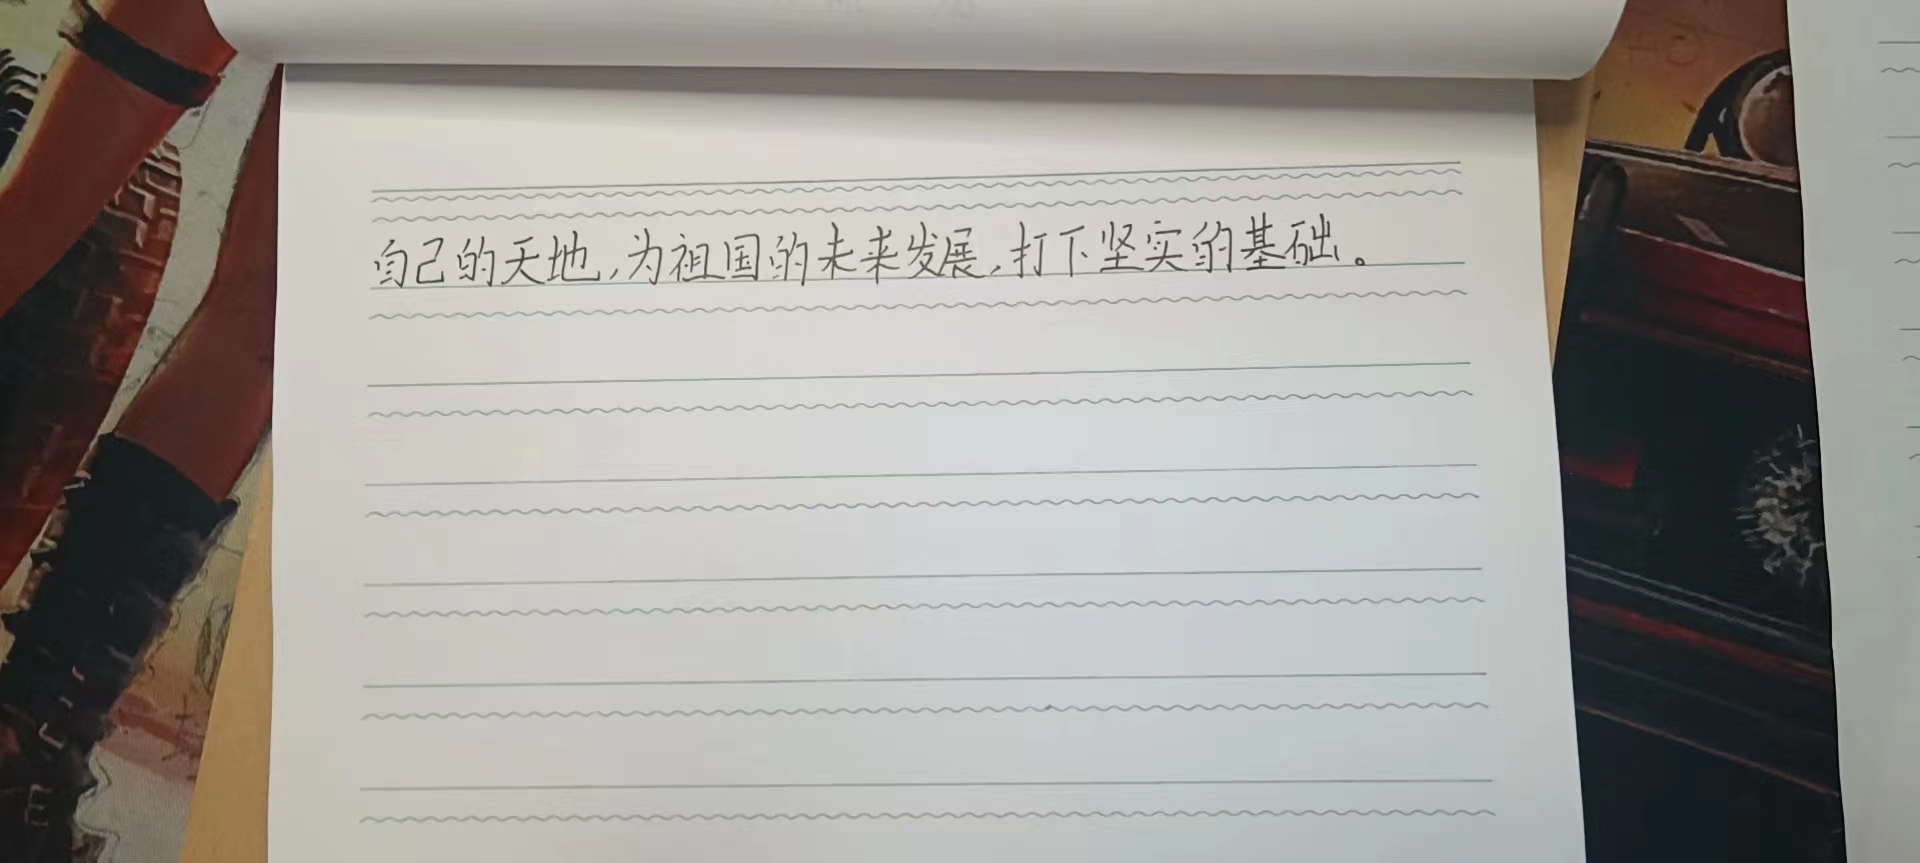 自己的天地,为祖国的未来发展,打下坚实的基础。